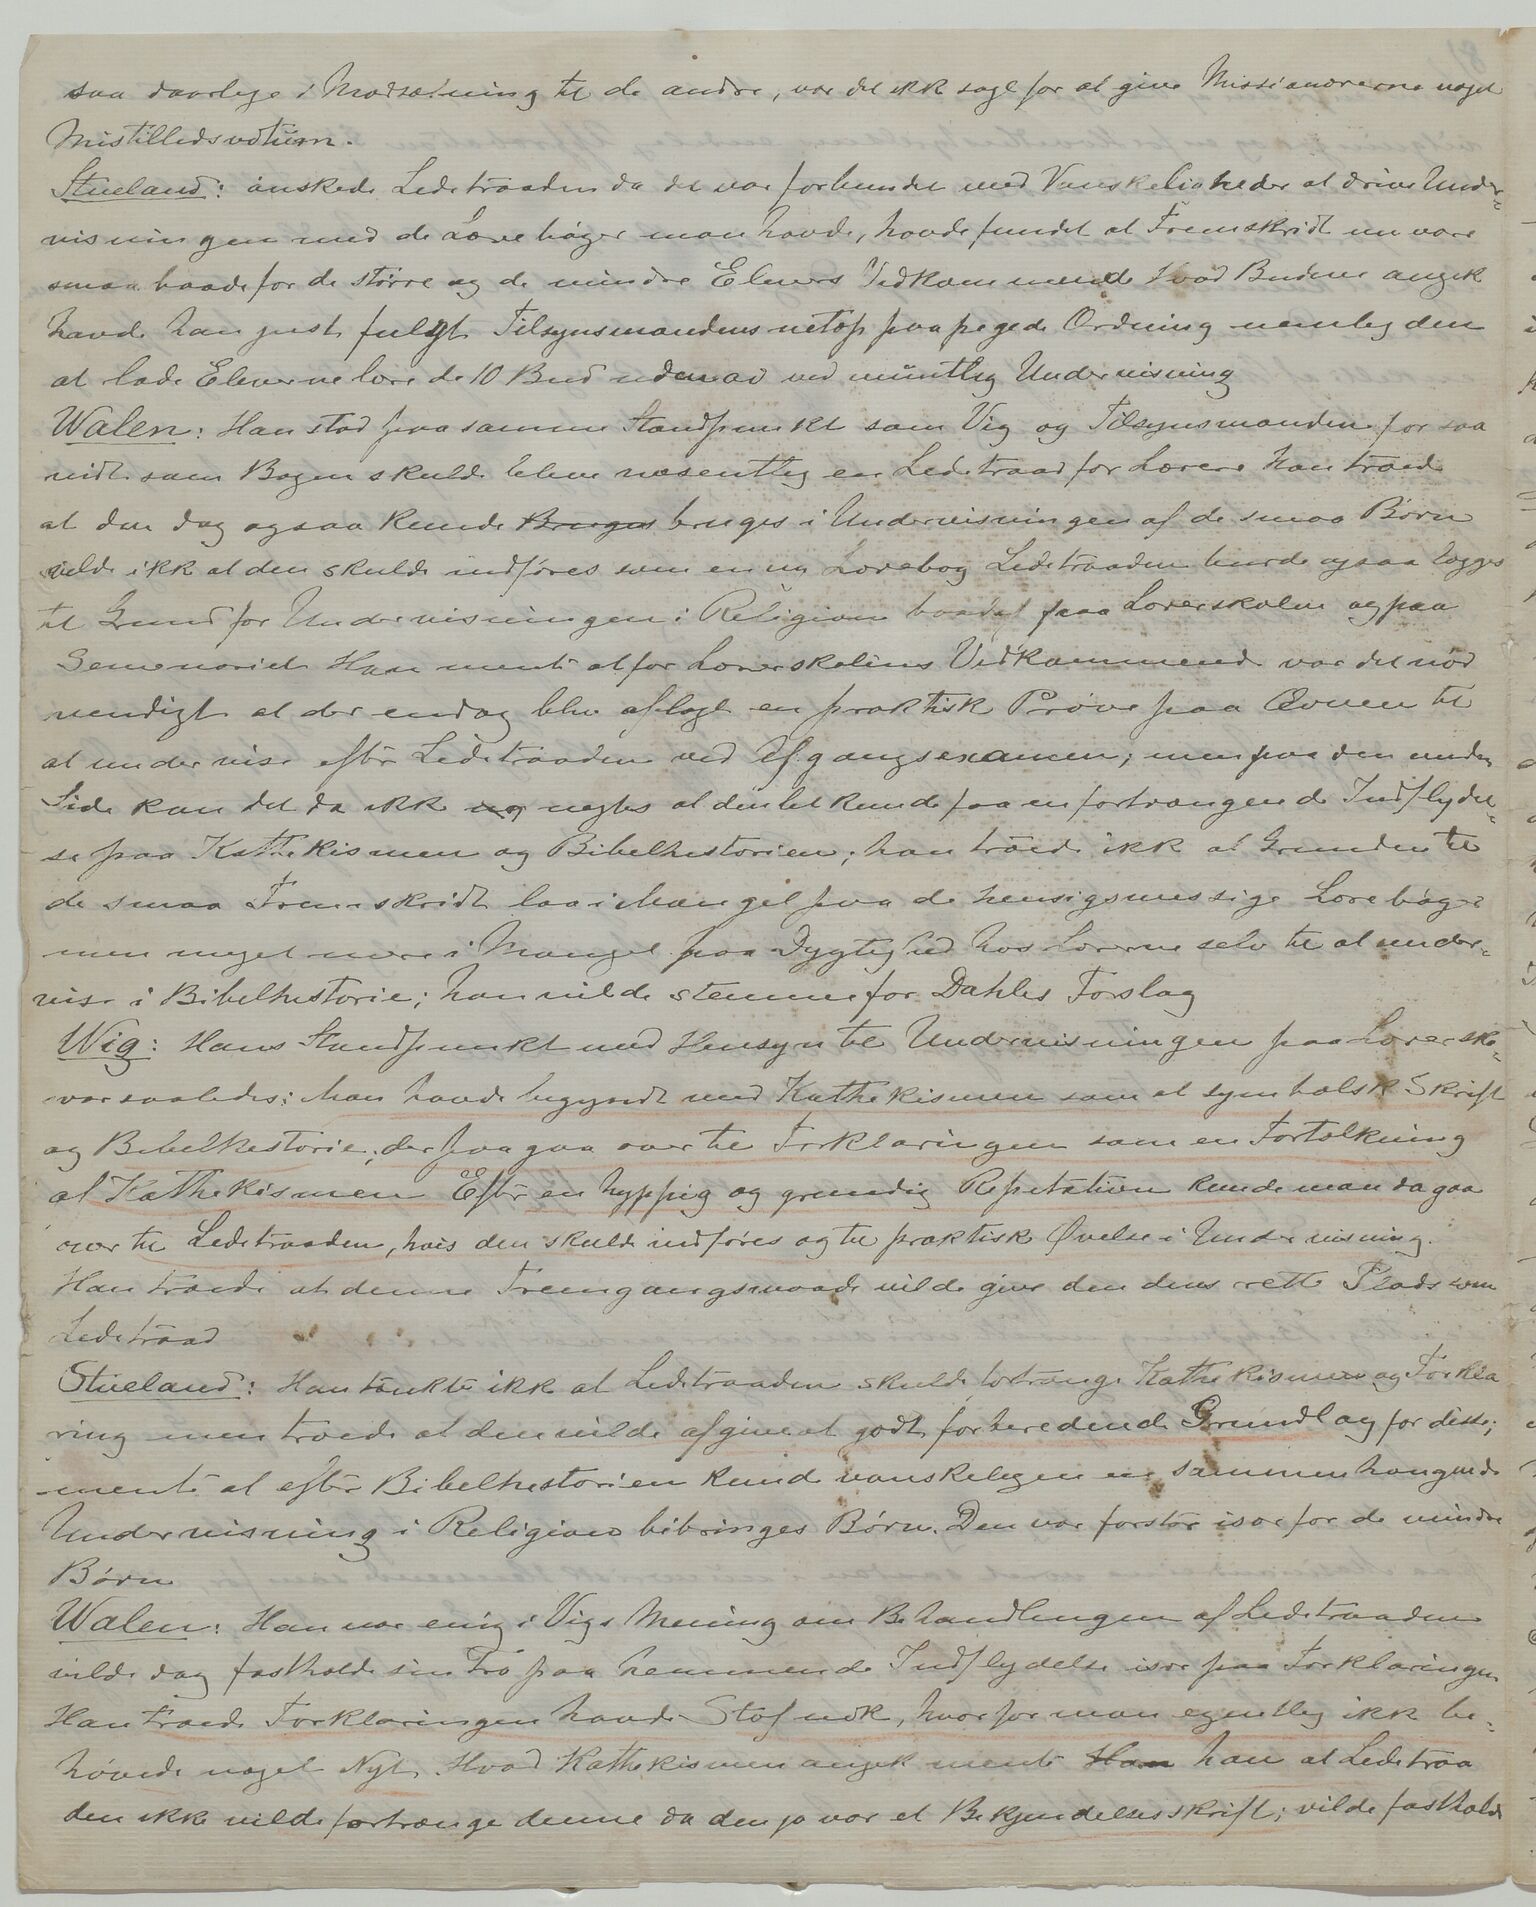 saa daarlige i Modsætning til de andre, var det ikke sagt for at give Missionærerne noget
Mistillidsvotum.
Stueland: ønskede Ledetraaden da det var forbundet med Vanskeligheder at drive Under-
visningen med de Lærebøger man havde, havde fundet at Fremskridt nu vare
smaa baade for de større og de mindre Elevers Vedkommende Hvad Budene angik
havde han just fulgt Tilsynsmandens netop paapegede Ordning nemlig den
at lade Eleverne lære de 10 Bud udenad ved mundtlig Undervisning
Walen: Han stod paa samme Standpunkt som Vig og Tilsynsmanden for saa
vidt som Bogen skulde blive væsentlig en Ledetraad for Lærere Han troede
at den dog ogsaa kunde Bruges bruges i Undervisningen af de smaa Børn
vilde ikke at den skulde indføres som en ny Lærebog Ledetraaden burde ogsaa lægges
til Grund for Undervisningen i Religion baade paa Lærerskolen og paa
Semenariet Han mente at for Lærerskolens Vedkommende var det nød
vendigt at der endog blev aflagt en praktisk Prøve paa Ævnen til
at undervise efter Ledetraaden ved Afgangsexamen; men paa den anden
Side kan det da ikke neg negtes at den let kunde faa en fortrængende Indflydel-
se paa Kathekismen og Bibelhistorien; han troede ikke at Grunden til
de smaa Fremskridt laa i Mangel paa de hensigsmessige Lærebøger
men meget mere i Mangel paa Dygtighed hos Lærerne selv til at under-
vise i Bibelhistorie; han vilde stemme for Dahles Forslag
Wig: Hans Standpunkt med Hensyn til Undervisningen paa Lærersko-
var saaledes: Man havde begyndt med Kathekismen som et symbolsk Skrift
og Bibelhestorie, derpaa gaa over til Forklaringen som en Fortolkning
af Kathekismen Efter en hyppig og grundig Repetation kunde man da gaa
over til Ledetraaden, hvis den skulde indføres og til praktisk Øvelse i Undervisning.
Han troede at denne Fremgangsmaade vilde give den dens rette Plads som
Ledetraad
Stueland: Han tænkte ikke at Ledetraaden skulde fortrænge Kathekismen og Forkla
ring men troede at den vilde afgive et godt forberedende Grundlag for disse;
mente at efter Bibelhestorien kunde vanskeligen en sammenhængende
Undervisning i Religion bibringes Børn. Den var for stor især for de mindre
Børn
Walen: Han var enig i Vigs Mening om Behandlingen af Ledetraaden
vilde dog fastholde sin Tro paa hemmende Indflydelse især paa Forklaringen
Han troede Forklaringen havde Stof nok, hvorfor man egentlig ikke be-
høvede noget Nyt. Hvad Kathekismen angik mente Han han at Ledetraa
den ikke vilde fortrænge denne da den jo var et Bekjendelsesskrift; vilde fastholde